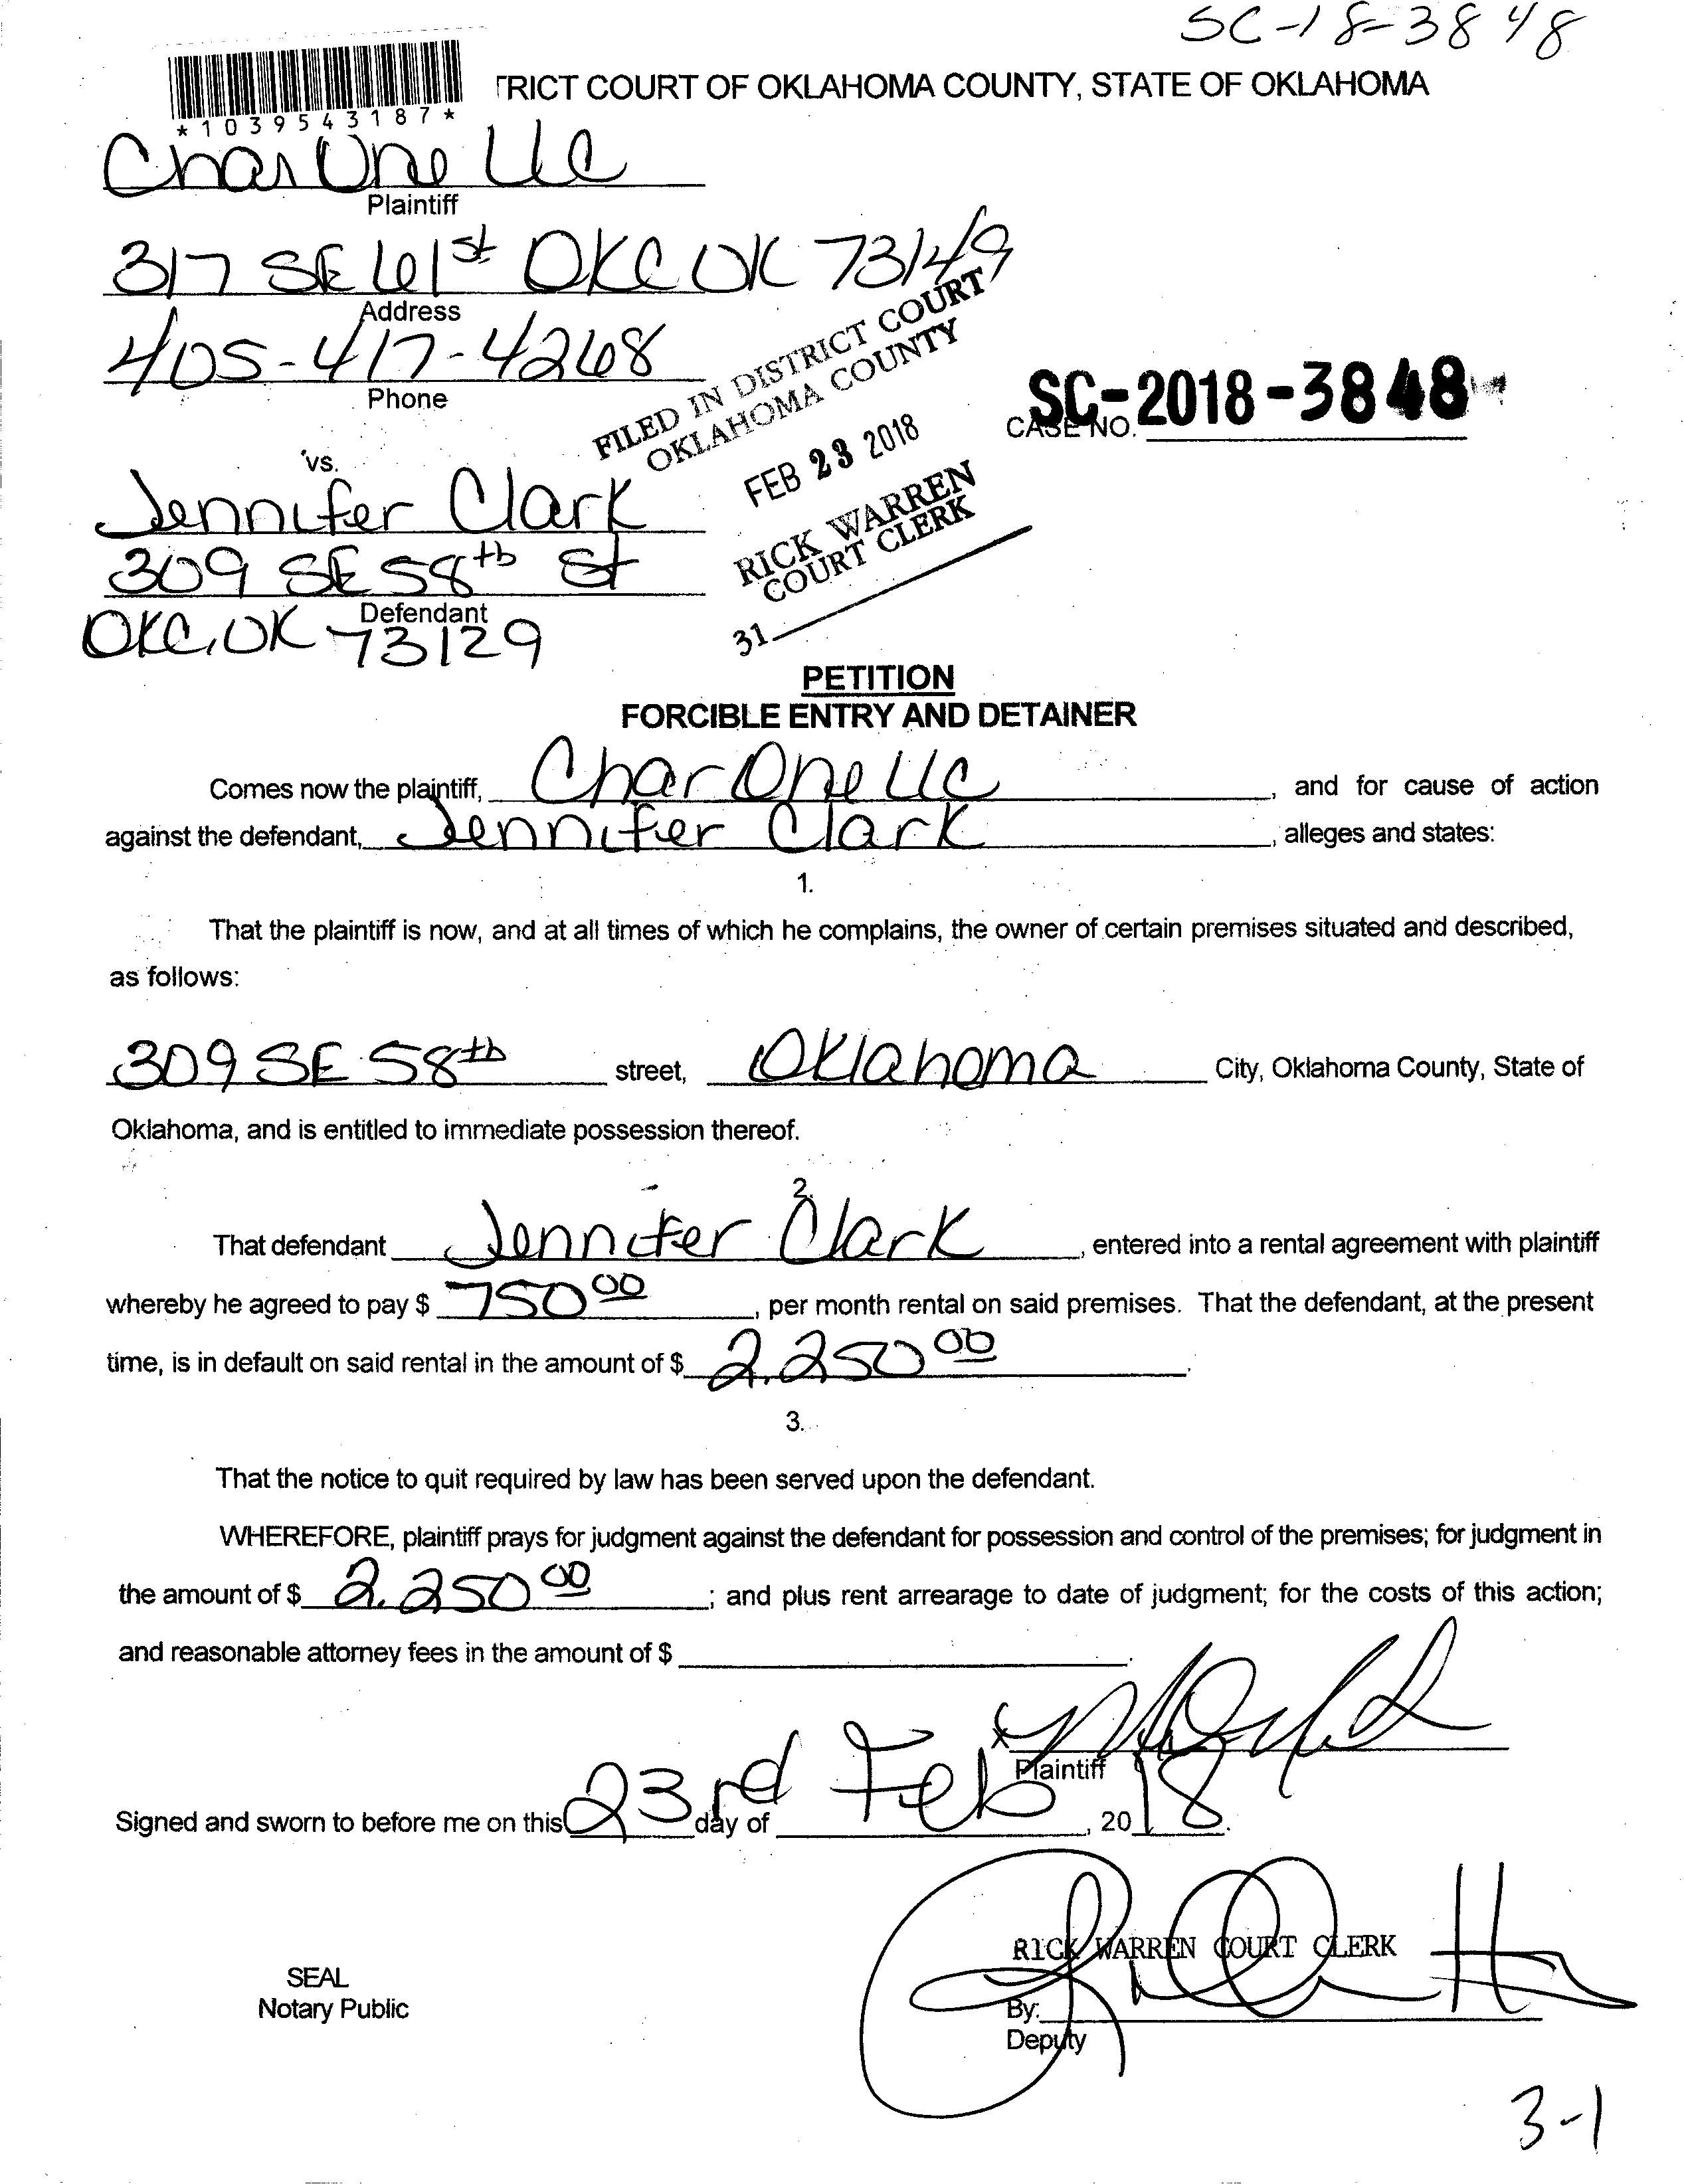 SC-18-3848
TRICT COURT OF OKLAHOMA COUNTY, STATE OF OKLAHOMA
*1039543187*
Char One LLC
Plaintiff
317 SE 61st OKC OK 73149
Address
405-417-4268
Phone
FILED IN DISTRICT COURT
OKLAHOMA COUNTY
FEB 23 2018
RICK WARREN
COURT CLERK
31
SC-2018-3848
CASE NO.
vs.
Jennifer Clark
309 SE 58th St
Defendant
OKC, OK 73129
PETITION
FORCIBLE ENTRY AND DETAINER
Comes now the plaintiff, Char One LLC, and for cause of action
against the defendant, Jennifer Clark, alleges and states:
1.
That the plaintiff is now, and at all times of which he complains, the owner of certain premises situated and described,
as follows:
309 SE 58th street, Oklahoma City, Oklahoma County, State of
Oklahoma, and is entitled to immediate possession thereof.
2.
That defendant Jennifer Clark, entered into a rental agreement with plaintiff
whereby he agreed to pay $ 750 00, per month rental on said premises. That the defendant, at the present
time, is in default on said rental in the amount of $ 2,250 00.
3.
That the notice to quit required by law has been served upon the defendant.
WHEREFORE, plaintiff prays for judgment against the defendant for possession and control of the premises; for judgment in
the amount of $ 2,250 00; and plus rent arrearage to date of judgment; for the costs of this action;
and reasonable attorney fees in the amount of $ .
x
Plaintiff
Signed and sworn to before me on this 23rd day of Feb, 2018.
RICK WARREN COURT CLERK
SEAL
Notary Public
By:
Deputy
3-1